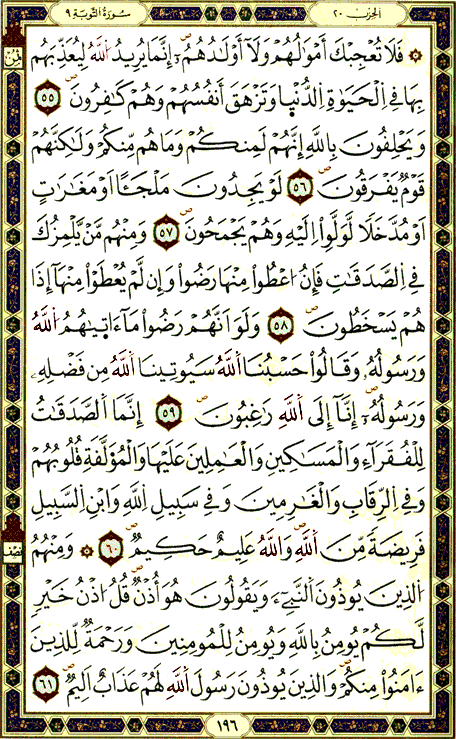 الحزب ٢٠
سُورَةُ التَّوْبَةِ ٩
ثمن
۞ فَلَا تُعْجِبْكَ أَمْوَٰلُهُمْ وَلَآ أَوْلَٰدُهُمُۥٓ إِنَّمَا يُرِيدُ اُللَّهُ لِيُعَذِّبَهُم
بِهَا فِے اِلْحَيَوٰةِ اِلدُّنْي۪ا وَتَزْهَقَ أَنفُسُهُمْ وَهُمْ كَٰفِرُونَ ٥٥
وَيَحْلِفُونَ بِاللَّهِ إِنَّهُمْ لَمِنكُمْ وَمَا هُم مِّنكُمْ وَلَٰكِنَّهُمْ
قَوْمٌ يَفْرَقُونَ ٥٦ لَوْ يَجِدُونَ مَلْجَـًٔا اَوْ مَغَٰرَٰتٍ
اَوْ مُدَّخَلًا لَّوَلَّوِاْ اِلَيْهِ وَهُمْ يَجْمَحُونَ ٥٧ وَمِنْهُم مَّنْ يَّلْمِزُكَ
فِے اِلصَّدَقَٰتِ فَإِنُ اعْطُواْ مِنْهَا رَضُواْ وَإِن لَّمْ يُعْطَوْاْ مِنْهَآ إِذَا
هُمْ يَسْخَطُونَ ٥٨ وَلَوَ اَنَّهُمْ رَضُواْ مَآ ءَات۪يٰهُمُ اُللَّهُ
وَرَسُولُهُۥ وَقَالُواْ حَسْبُنَا اَللَّهُ سَيُوتِينَا اَللَّهُ مِن فَضْلِهِۦ
وَرَسُولُهُۥٓ إِنَّآ إِلَى اَللَّهِ رَٰغِبُونَ ٥٩ إِنَّمَا اَلصَّدَقَٰتُ
لِلْفُقَرَآءِ وَالْمَسَٰكِينِ وَالْعَٰمِلِينَ عَلَيْهَا وَالْمُؤَلَّفَةِ قُلُوبُهُمْ
وَفِے اِلرِّقَابِ وَالْغَٰرِمِينَ وَفِے سَبِيلِ اِللَّهِ وَابْنِ اِلسَّبِيلِ
فَرِيضَةً مِّنَ اَللَّهِ وَاللَّهُ عَلِيمٌ حَكِيمٌ ٦٠ ۞ وَمِنْهُمُ
نصف
اُلذِينَ يُوذُونَ اَلنَّبِےٓءَ وَيَقُولُونَ هُوَ أُذْنٌ قُلُ اذْنُ خَيْرٍ
لَّكُمْ يُومِنُ بِاللَّهِ وَيُومِنُ لِلْمُومِنِينَ وَرَحْمَةٌ لِّلذِينَ
ءَامَنُواْ مِنكُمْ وَالذِينَ يُوذُونَ رَسُولَ اَللَّهِ لَهُمْ عَذَابٌ اَلِيمٌ ٦١
١٩٦